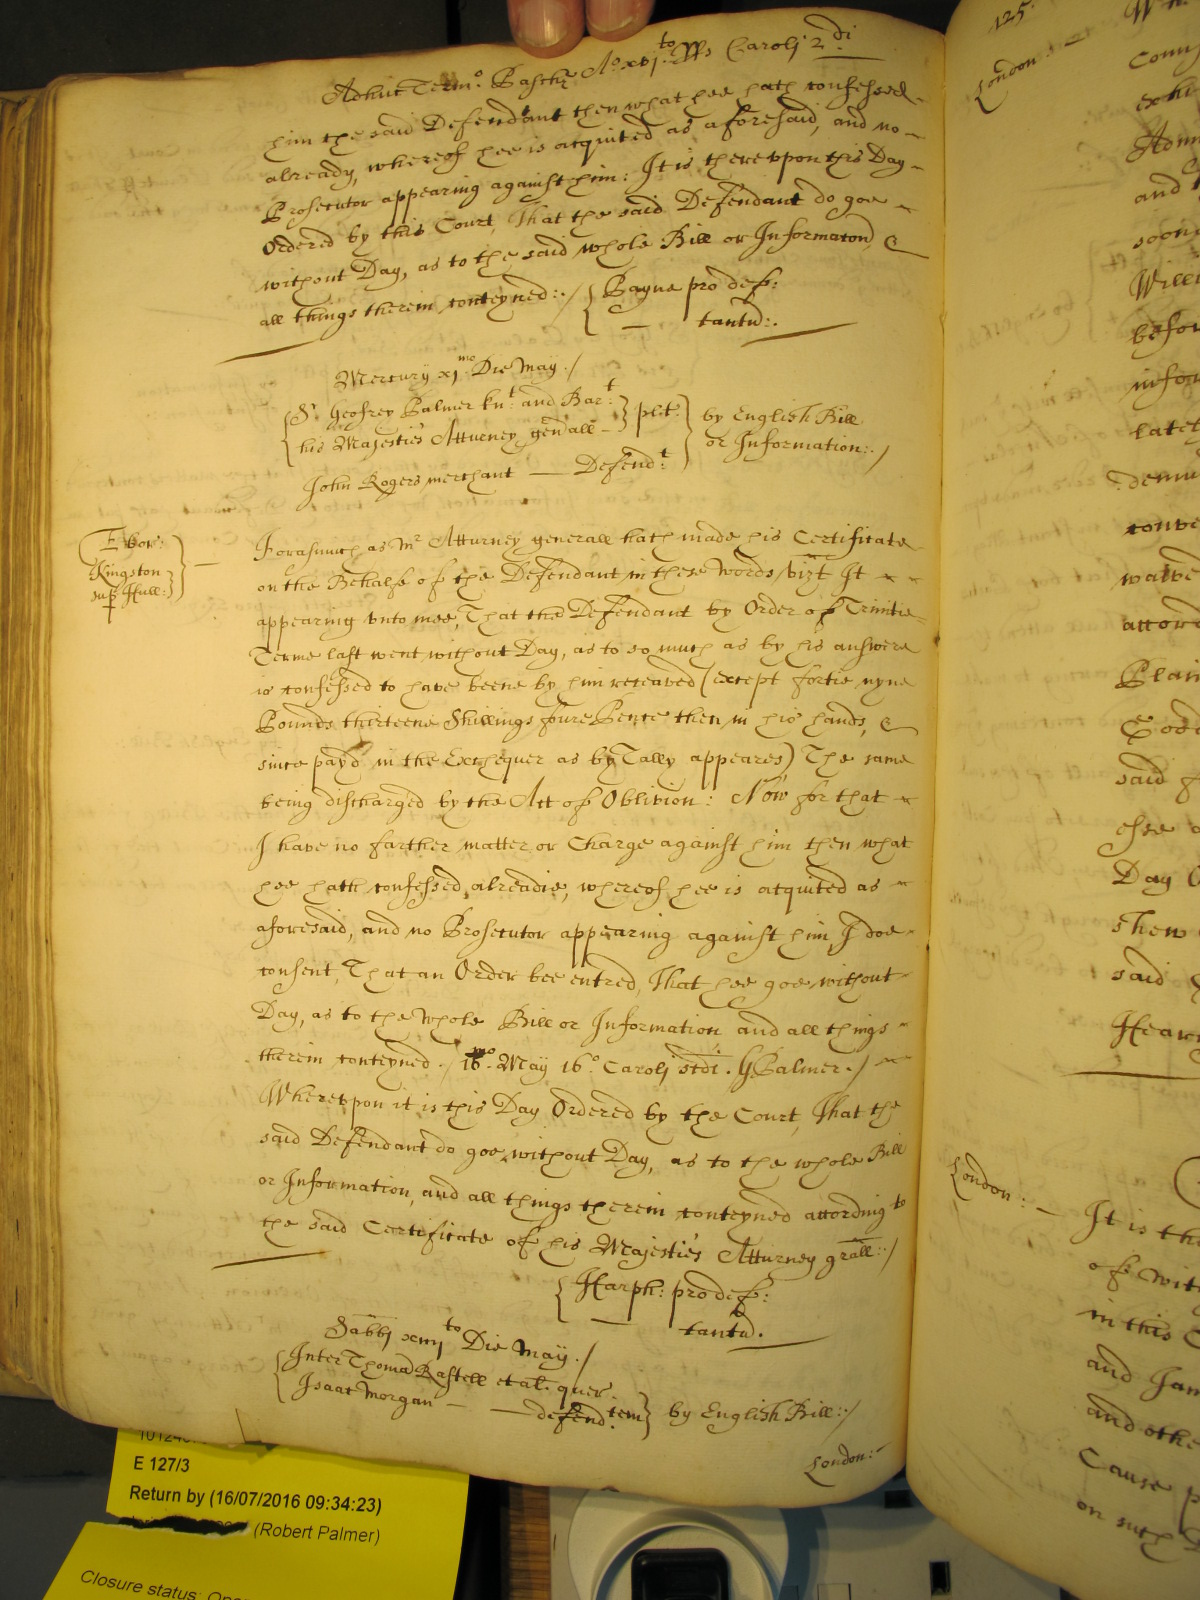 Adhuc Termo: Pasche Ao xvjto RRs Caroli 2di
him the said Defendant then what hee hath confessed
already, whereof hee is acquited as aforesaid, and no
Prosecutor appearing against him: It is therevpon this Day
Ordered by this Court, That the said Defendant do goe
without Day, as to the said whole Bill or Informaton, &
all things therein conteyned:./ Bayne pro def:
tantu:.
Mercury xjmo Die May ./
Sr. Geofrey Palmer knt: and Bart:
his Majesties Atturney genall
plt:
by English Bill
or Information:./
John Rogers merchant — Defendt:
Ebor:
Kingston
sup Hull:
Forasmuch as Mr Atturney generall hath made his Certificate
on the Behalfe of the Defendant in these words /vizt It
appearing vnto mee, That the Defendant by Order of Trinitie
Terme last went without Day, as to so much as by his answere
is confessed to have beene by him receaved (except fortie nyne
Pounds thirteene Shillings foure Pence then in his hands, &
since payd in the Exchequer as by Tally appeares) The same
being discharged by the Act of Oblivion: Now for that
I have no farther matter or Charge against him then what
hee hath confessed alreadie, whereof hee is acquited as
aforesaid, and no Prosecutor appearing against him, I doe
consent, That an Order bee entred, That hee goe without
Day, as to the whole Bill or Information and all things
therein conteyned ./ 16mo. May 16o Caroli scdi . G Palmer ./
Wherevpon it is this Day Ordered by the Court, That the
said Defendant do goe without Day, as to the whole Bill
or Information, and all things therein conteyned according to
the said Certificate of his Majesties Atturney grall:./
Harph: pro def:
tantu.
Sabbi xiiijto Die May ./
Inter Thomã Rastell et al: quer
Isaac Morgan — defendtem
by English Bill:./
London:
125.
London:
and
said
Day
shew
said
London:
It is the
of
in this
and
and othe
Cause
on such
E 127/3
Return by (16/07/2016 09:34:23)
(Robert Palmer)
Closure status: